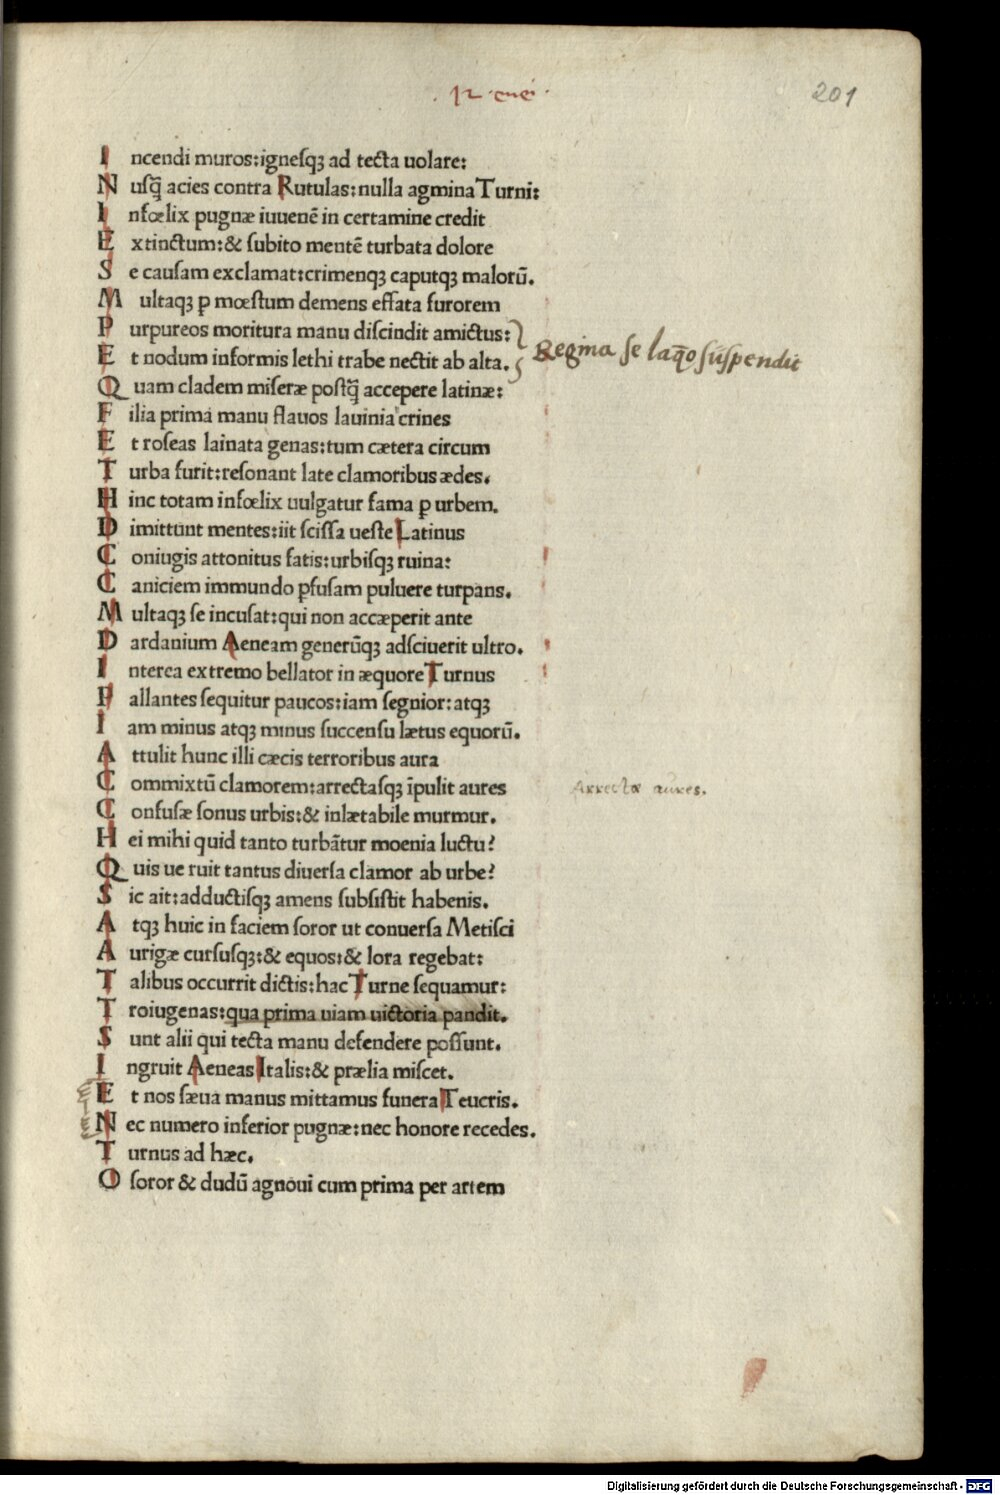 .12.enei.
201
Incendi muros:ignesqꝫ ad tecta uolare:
Nusq̄ acies contra Rutulas:nulla agmina Turni:
Infœlix pugnæ iuuenē in certamine credit
Extinctum:& subito mentē turbata dolore
Se causam exclamat:crimenqꝫ caputqꝫ malorū.
Multaqꝫ ꝑ mœstum demens effata furorem
Purpureos moritura manu discindit amictus:
Et nodum informis lethi trabe nectit ab alta.
Regina se laq̄o suspendit
Quam cladem miseræ postq̄ accepere latinæ:
Filia prima manu flauos lauinia crines
Et roseas lainata genas:tum cætera circum
Turba furit:resonant late clamoribus ædes.
Hinc totam infœlix uulgatur fama ꝑ urbem.
Dimittunt mentes:iit scissa ueste Latinus
Coniugis attonitus fatis:urbisqꝫ ruina:
Caniciem immundo ꝑfusam puluere turpans.
Multaqꝫ se incusat:qui non accæperit ante
Dardanium Aeneam generūqꝫ adsciuerit ultro.
Interea extremo bellator in æquore Turnus
Pallantes sequitur paucos:iam segnior:atqꝫ
Iam minus atqꝫ minus succensu lætus equorū.
Attulit hunc illi cæcis terroribus aura
Commixtū clamorem:arrectasqꝫ īpulit aures
Arrectæ aures.
Confusæ sonus urbis:& inlætabile murmur.
Hei mihi quid tanto turbātur moenia luctu?
Quis ue ruit tantus diuersa clamor ab urbe?
Sic ait:adductisqꝫ amens subsistit habenis.
Atqꝫ huic in faciem soror ut conuersa Metisci
Aurigæ cursusqꝫ:& equos:& lora regebat:
Talibus occurrit dictis:hac Turne sequamur:
Troiugenas:qua prima uiam uictoria pandit.
Sunt alii qui tecta manu defendere possunt.
Ingruit Aeneas Italis:& prælia miscet.
Et nos sæua manus mittamus funera Teucris.
Nec numero inferior pugnæ:nec honore recedes.
Turnus ad hæc.
O soror & dudū agnoui cum prima per artem
Digitalisierung gefördert durch die Deutsche Forschungsgemeinschaft - DFG